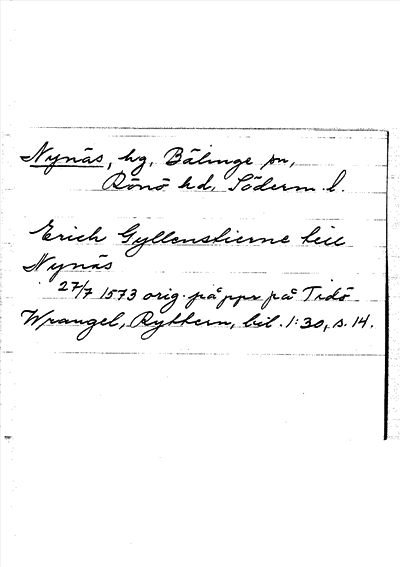 Nynäs, hg, Bälinge sn,
Rönö hd, Söderm. l.
Erich Gyllenstierne till
Nynäs
27/7 1573 orig. på ppr på Tidö
Wrangel, Ryttern, bil. 1:30, s. 14.